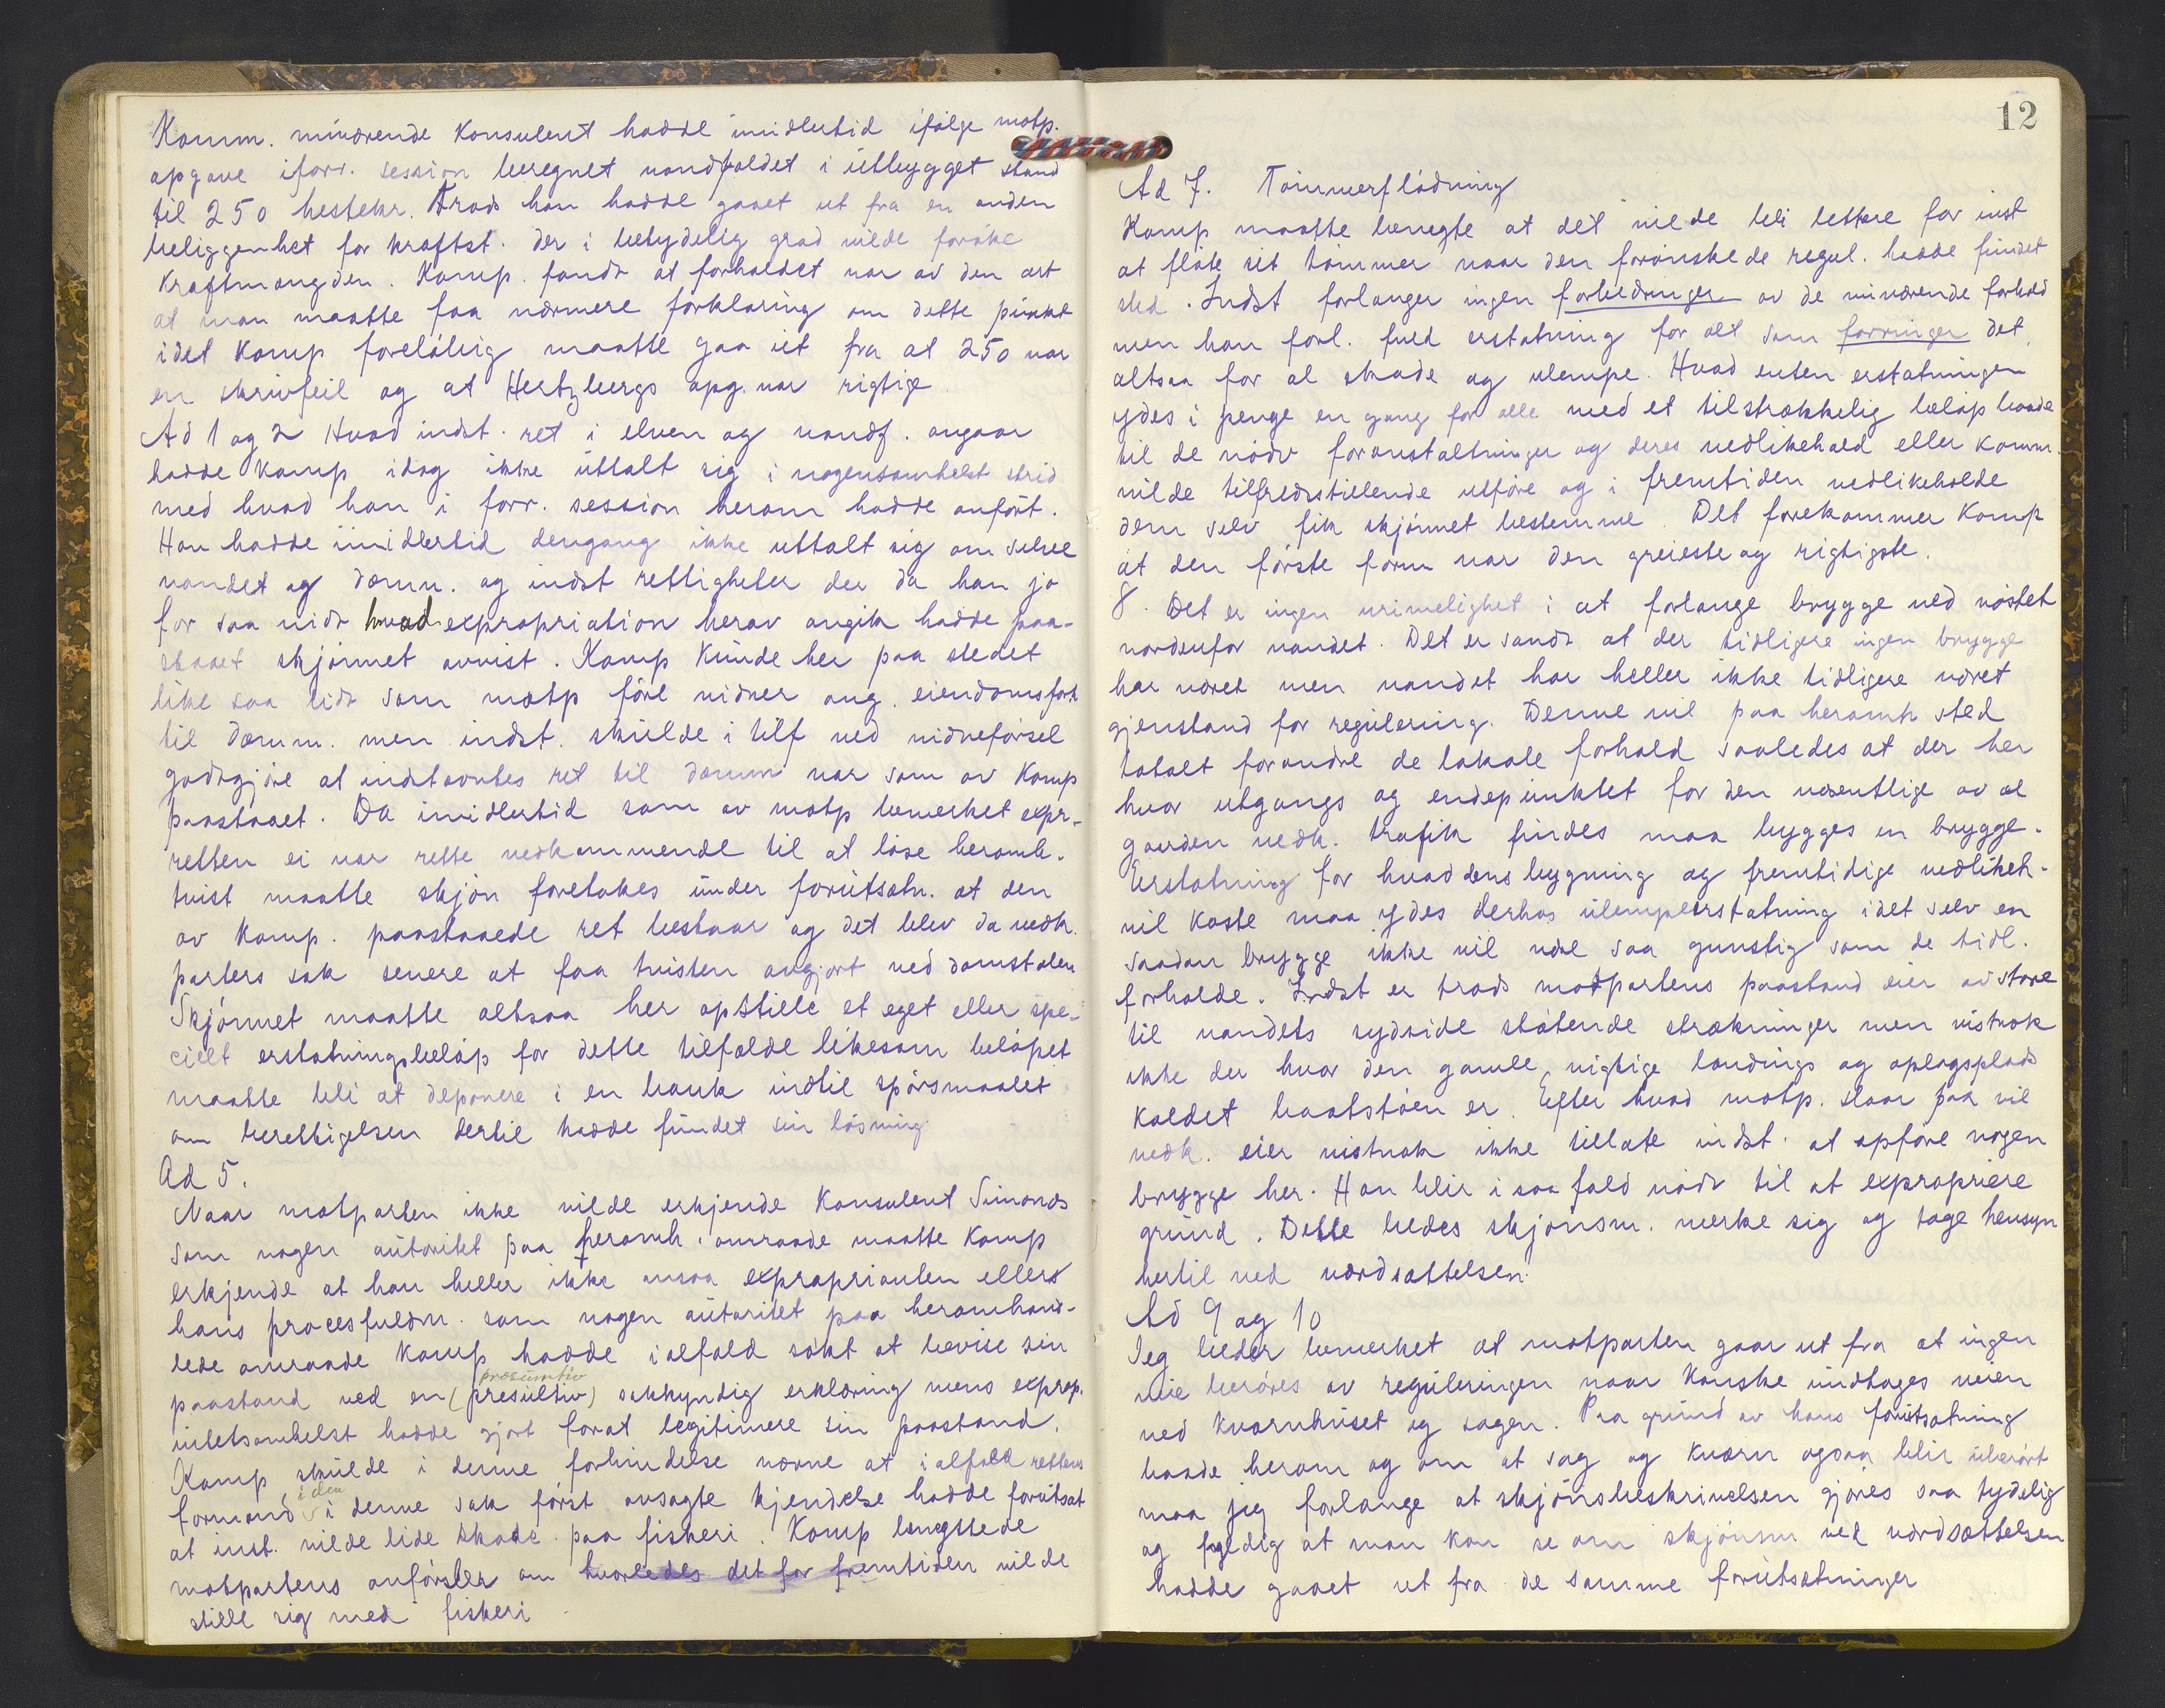 Komm. nuværende Konsulent hadde imidlertid ifölge motp.
opgave i forr. session beregnet vandfaldet i utbygget stand
til 250 hestekr. Trods han hadde gaaet ut fra en anden
beliggenhet for kraftst. der i betydelig grad vilde foröke
kraftmængden. Kamp. fandt at forholdet var av den art
at man maatte faa nærmere forklaring om dette punkt
idet Kamp foreløbig maatte gaa ut fra at 250 var
en skrivfeil og at Hertzbergs opg. var rigtige
Ad 1 og 2 Hvad indst. ret i elven og vandf. angaar
hadde Kamp idag ikke uttalt sig i nogensomhelst strid
med hvad han i forr. session herom hadde anfört.
Han hadde imidlertid dengang ikke uttalt sig om selve
vandet og damm. og indst rettigheter der da han jo
for saa vidt hvad expropriation herav angik hadde paa-
staaet skjönnet avvist. Kamp kunde her paa stedet
like saa lidt som motp före vidner ang. eiendomsforh
til damm. men indst. skulde i tilf ved vidneförsel
godtgjöre at indstævntes ret til damm var som av Kamp
paastaaet. Da imidlertid som av motp bemerket expr.-
retten ei var rette vedkommende til at löse heromh.
tvist maatte skjön foretakes under forutsætn. at den
av Kamp. paastaaede ret bestaar og det blev da vedk.
parters sak senere at faa tvisten avgjort ved domstolen
Skjönnet maatte altsaa her opstille et eget eller spe-
cielt erstatningsbelöp for dette tilfælde likesom belöpet
maatte bli at deponere i en bank indtil spörsmaalet
om berettigelsen dertil hadde fundet sin lösning.
Ad 5.
Naar motparten ikke vilde erkjende Konsulent Simonds
som nogen autoritet paa heromh. omraade maatte Kamp
erkjende at han heller ikke ansaa exproprianten ellers
hans procesfuldm. som nogen autoritet paa heromhand-
lede omraade Kamp hadde ialfald sökt at bevise sin
presumtiv
paastand ved en (presultiv) sakkyndig erklæring mens exprop.
intetsomhelst hadde gjort forat legitimere sin paastand.
Kamp skulde i denne forbindelse nævne at ialfald rettens
i den
formand i denne sak först avsagte kjendelse hadde forutsat
at inst. vilde lide skade paa fiskeri. Kamp benegtede
motpartens anförsler om hvorledes det for fremtiden vilde
stille sig med fiskeri
12
Ad 7. Tömmerflödning
Kamp maatte benegte at det vilde bli lettere for inst
at flöte sit tömmer naar den forönskede regul. hadde fundet
sted. Indst forlanger ingen forbedringer av de nuværende forhold
men han forl. fuld erstatning for alt som forringer det
altsaa for al skade og ulempe. Hvad enten erstatningen
ydes i penge en gang for alle med et tilstrækkelig belöp baade
til de nödv foranstaltninger og deres vedlikehold eller komm.
vilde tilfredsstillende utföre og i fremtiden vedlikeholde
dem selv fik skjönnet bestemme. Det forekommer Kamp
at den förste form var den greieste og rigtigste.
8. Det er ingen urimelighet i at forlange brygge ved nöstet
nordenfor vandet. Det er sandt at der tidligere ingen brygge
har været men vandet har heller ikke tidligere været
gjenstand for regulering. Denne vil paa heromh sted
totalt forandre de lokale forhold saaledes at der her
hvor utgangs og endepunktet for den væsentlige av al
gaarden vedk. trafik findes maa bygges en brygge.
Erstatning for hvad dens bygning og fremtidige vedlikeh-
vil koste maa ydes derhos ulempeerstatning idet selv en
saadan brygge ikke vil være saa gunstig som de tidl.
forholde. Indst er trods motpartens paastand eier av store
til vandets sydside stötende strækninger men vistnok
ikke der hvor den gamle, vigtige landings og oplagsplads
kaldet baatstöen er. Efter hvad motp. slaar paa vil
vedk. eier vistnok ikke tillate indst. at opföre nogen
brygge her. Han blir i saa fald nödt til at expropriere
grund. Dette bedes skjönsm. merke sig og tage hensyn
hertil ved værdsættelsen.
Ad 9 og 10
Jeg beder bemerket at motparten gaar ut fra at ingen
veie beröres av reguleringen naar kanske undtages veien
ved kvernhuset og sagen. Paa grund av hans forutsætning
baade herom og om at sag og kværn ogsaa blir uberört
maa jeg forlange at skjönsbeskrivelsen gjöres saa tydelig
og fyldig at man kan se om skjönsm ved værdsættelsen
hadde gaaet ut fra de samme forutsætninger